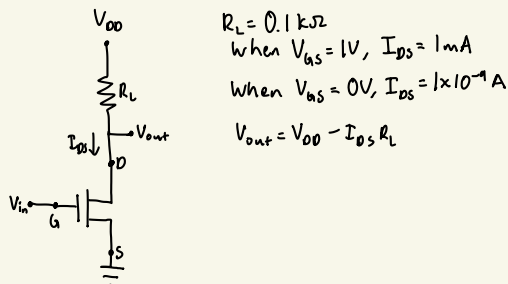 V_DD
R_L
I_DS↓
V_out
D
V_in
G
S
R_L = 0.1 kΩ
When V_GS = 1V, I_DS = 1mA
When V_GS = 0V, I_DS = 1×10^-9 A
V_out = V_DD - I_DS R_L